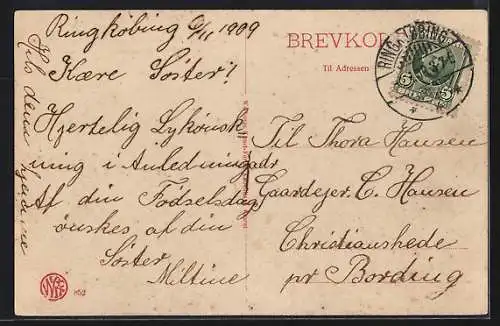 Ringkøbing 6/11 1909
Kære Søster!
Hjertelig Lykønsk
ning i Anledning
Af din Fødselsdag
ønskes af din
Søster
Miltine
Hels dem hjemme
BREVKORT
Til Adressen
RINGKJØBING
5 5
Til Thora Hansen
adr
Gaardejer C. Hansen
Christianshede
pr Bording
852